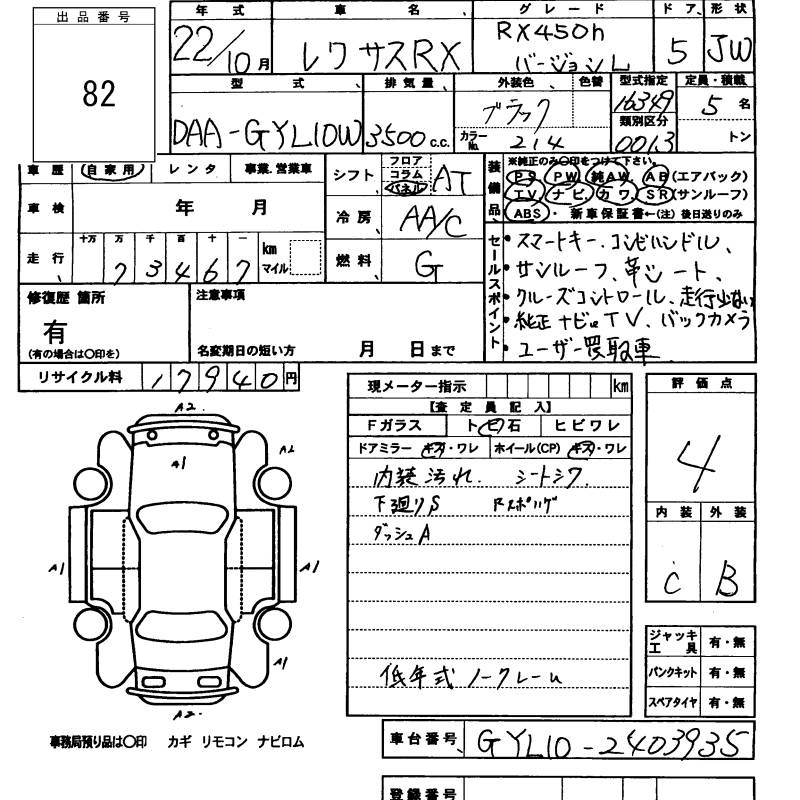 出品番号
82
年式 車名 グレード ドア 形状
22/10月 レクサスRX RX450h バージョンL 5 JW
型式 排気量 外装色 色替 型式指定 定員・積載
DAA-GYL10W 3500 c.c. ブラック 16349 5名
カラーNo. 214 類別区分 0013 トン
車歴 自家用 レンタ 事業.営業車
シフト フロア コラム パネル AT
車検 年 月
冷房 AA/C
走行 十万 万 千 百 十 一
7 3 4 6 7 km マイル
燃料 G
装備品 ※純正のみ〇印をつけて下さい。
PS PW 純AW. AB(エアバック)
TV ナビ. カワ. SR(サンルーフ)
ABS・ 新車保証書←(注)後日送りのみ
セールスポイント
・スマートキー、コンビハンドル、
・サンルーフ、革シート、
・クルーズコントロール、走行少ない
・純正ナビ TV、バックカメラ
・ユーザー買取車
修復歴 箇所
有
(有の場合は〇印を)
注意事項
名変期日の短い方 月 日まで
リサイクル料 17940円
A2.
A1
A2
A1
A1
A1
A2.
事務局預り品は〇印 カギ リモコン ナビロム
現メーター指示 km
【査定員記入】
Fガラス トビ石 ヒビワレ
ドアミラー キズ・ワレ ホイール(CP) キズ・ワレ
内装汚れ. シートシワ.
下廻りS
ダッシュA
低年式 ノークレーム
評価点
4
内装 外装
C B
ジャッキ工具 有・無
パンクキット 有・無
スペアタイヤ 有・無
車台番号 GYL10-2403935
登録番号